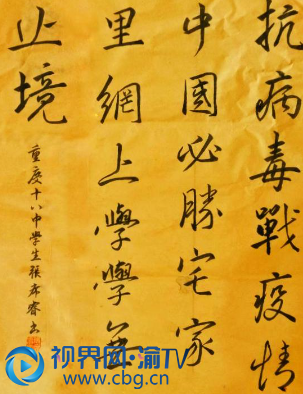 抗病毒戰疫情
中國必勝宅家
里網上學學無
止境
重慶十八中學生張希睿书
视界网·渝TV
www.cbg.cn